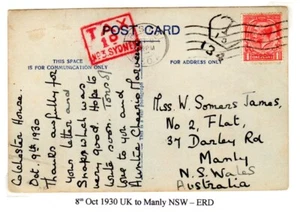 POST CARD
TAX
1D
Nº3.SYDNEY
THIS SPACE
IS FOR COMMUNICATION
FOR ADDRESS ONLY
Colchester House.
Oct. 9th 1930
Thanks awfully for
your letter and
Snaps which was
very good. Hope to
write soon. Tons of
love to you and
Auntie
Miss W. Somers James,
No 2, Flat,
37 Darley Rd
Manly
N.S. Wales
Australia
8th Oct 1930 UK to Manly NSW – ERD